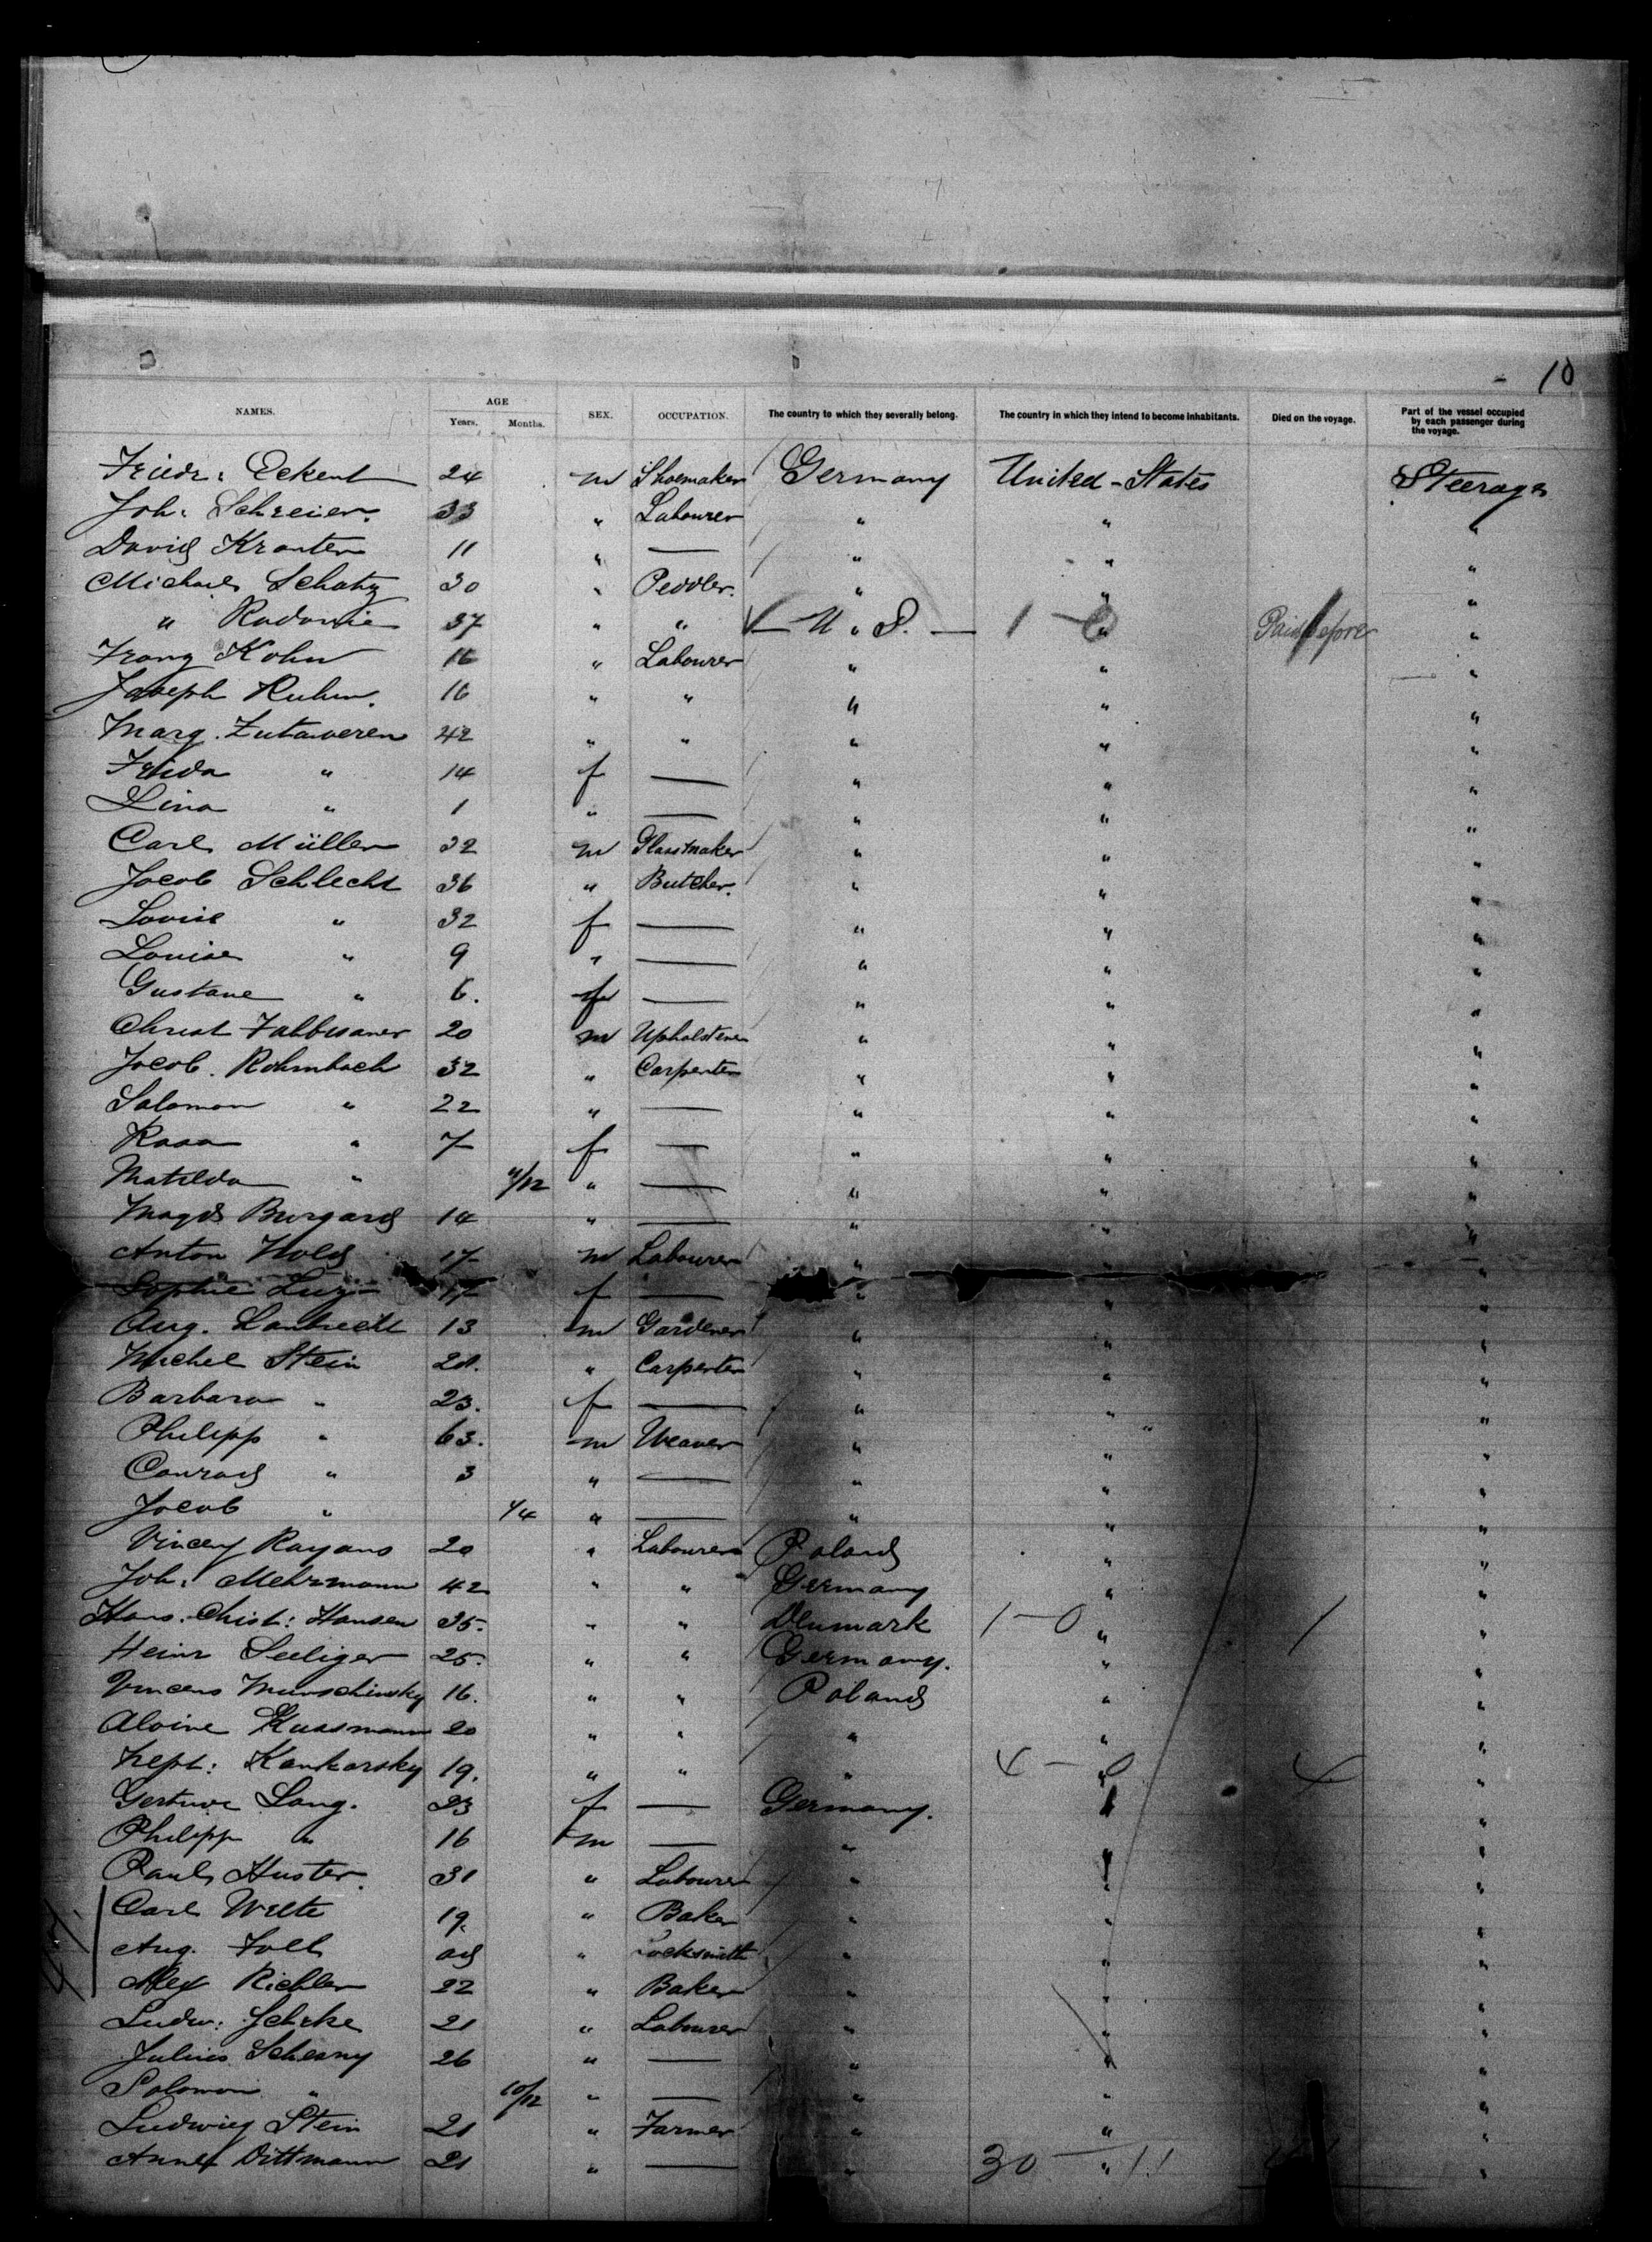 10
NAMES. AGE Years. Months. SEX. OCCUPATION. The country to which they severally belong. The country in which they intend to become inhabitants. Died on the voyage. Part of the vessel occupied by each passenger during the voyage.
Friedr: Eckert 24 m Shoemaker Germany United-States Steerage
Joh: Schreier. 33 " Labourer " " "
David Krauter 11 " — " " "
Michael Schatz 30 " Peddler. " " "
" 37 " " — U. S. — 1 - 0 " Paid before "
Franz Kohn 16 " Labourer " " "
Joseph Kuhn. 16 " " " " "
Marg. Zutavern 42 " " " " "
Frida " 14 f — " " "
Lina " 1 " — " " "
Carl Müller 32 m Glassmaker " " "
Jacob Schlecht 36 " Butcher. " " "
Louise " 32 f — " " "
Louise " 9 " — " " "
Gustave " 6. — " " "
Christ 20 m Upholsterer " " "
Jacob. Rohmbach 32 " Carpenter " " "
Salomon " 22 " — " " "
Rosa " 7 f — " " "
Matilda " /12 " — " " "
Magd Burgard 14 " — " " "
Anton 17 m Labourer " " "
Sophie Luz 17 f — " " "
Aug. 13 m Gardener " " "
Michel Stein " Carpenter " " "
Barbara " 23. f — " " "
Philipp " 63. m Weaver " " "
Conrad " 3 " — " " "
Jacob " 1/4 " — " " "
20 " Labourer Poland " "
Joh: Mehrmann 42 " " Germany " "
Hans. Christ: Hansen 35. " " Denmark 1-0 " 1 "
Heinr Seeliger 25. " " Germany. " "
Vincens 16. " " Poland " "
Alvine Kussmann 20 " " " " "
Kankarsky 19. " " " 4-0 " 4 "
Gertrude Lang. 23 f — Germany. "
Philipp " 16 m — " "
Paul Huster. 31 " Labourer " " "
Carl Welte 19. " Baker " " "
Aug. " Locksmith " " "
Alex Richter 22 " Baker " " "
Ludw: 21 " Labourer " " "
Julius 26 " — " " "
Solomon " 10/12 " — " " "
Ludwig Stein 21 " Farmer " " "
Dittmann 21 " — " 30 — " 11 "